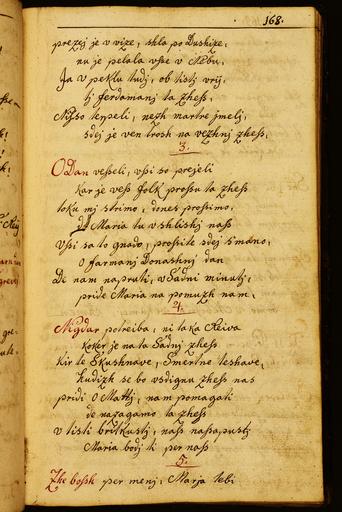 168.
prezej je v vize, shla po Dushize,
nu je pelala vsse v Nebu,
Ja v peklu tudj, ob tistj vrij,
tj ferdamanj ta zhess,
Niso terpeli, nezh martre jmeli,
sdej je ven trosh na vezhnj zhess,
3.
O Dan vesseli, vssi so prejeli
kar je vess folk prossu ta zhess
toku mj strimo, dones prossimo,
Maria tu vshlishj nass
Vssi sa to gnado, prossite sdej
O farmanj Donashnj dan
De nam napruti, v Sadni minutj,
pride Maria na pomuzh nam,
4.
Nigdar potreiba, ni taka Reiva
koker je na ta Sadnj zhess
kir te Skushnave, Smertne teshave,
hudizh se bo vsdignu zhess nas
pridi O Mattj, nam pomagati
de nazagamo ta zhess
v tisti britkustj, nass nasapustj
Maria bodj ti per nass
5.
Zhe bossh per menj, Marja tebi